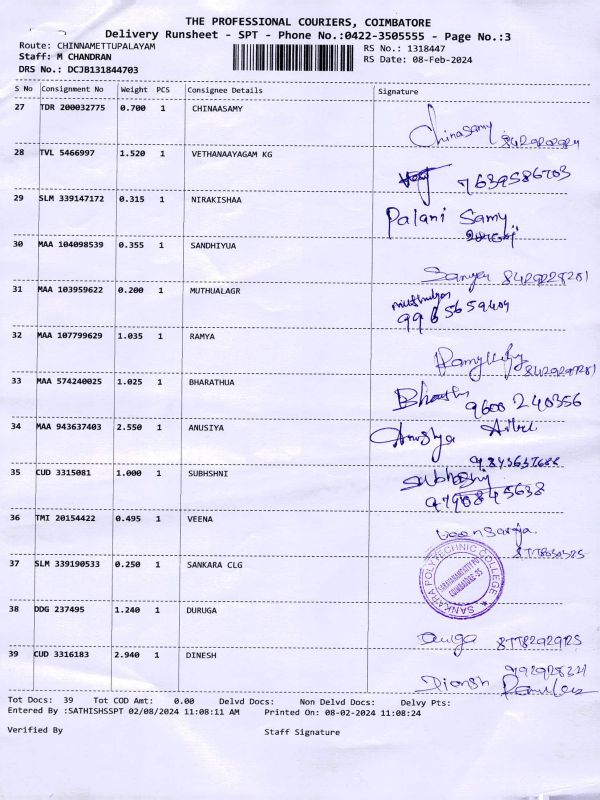 THE PROFESSIONAL COURIERS, COIMBATORE
Delivery Runsheet - SPT - Phone No.:0422-3505555 - Page No.:3
Route: CHINNAMETTUPALAYAM
RS No.: 1318447
Staff: M CHANDRAN
RS Date: 08-Feb-2024
DRS No.: DCJB131844703
S No Consignment No Weight PCS Consignee Details Signature
27 TDR 200032775 0.700 1 CHINAASAMY
Chinasamy
28 TVL 5466997 1.520 1 VETHANAAYAGAM KG
7639586703
29 SLM 339147172 0.315 1 NIRAKISHAA
Palani Samy
30 MAA 104098539 0.355 1 SANDHIYUA
31 MAA 103959622 0.200 1 MUTHUALAGR
9965659409
32 MAA 107799629 1.035 1 RAMYA
33 MAA 574240025 1.025 1 BHARATHUA
9600 240356
34 MAA 943637403 2.550 1 ANUSIYA
Anushya
35 CUD 3315081 1.000 1 SUBHSHNI
9790845638
36 TMI 20154422 0.495 1 VEENA
37 SLM 339190533 0.250 1 SANKARA CLG
SANKARA POLYTECHNIC COLLEGE
SARAVANAMPATTY PO
COIMBATORE-35
38 DDG 237495 1.240 1 DURUGA
Durga
39 CUD 3316183 2.940 1 DINESH
Dinesh
Tot Docs: 39 Tot COD Amt: 0.00 Delvd Docs: Non Delvd Docs: Delvy Pts:
Entered By :SATHISHSSPT 02/08/2024 11:08:11 AM Printed On: 08-02-2024 11:08:24
Verified By Staff Signature